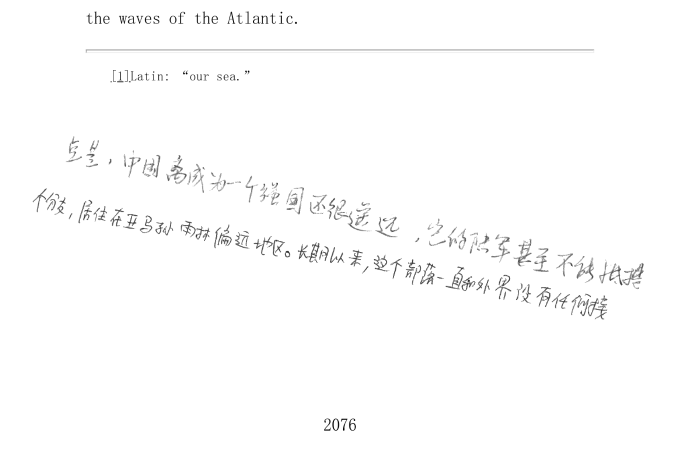 the waves of the Atlantic.
[1]Latin: “our sea.”
点是，中国离成为一个强国还很遥远，它的陆军甚至不能抵挡
个分支，居住在亚马孙雨林偏远地区。长期以来，这个部落一直和外界没有任何接
2076